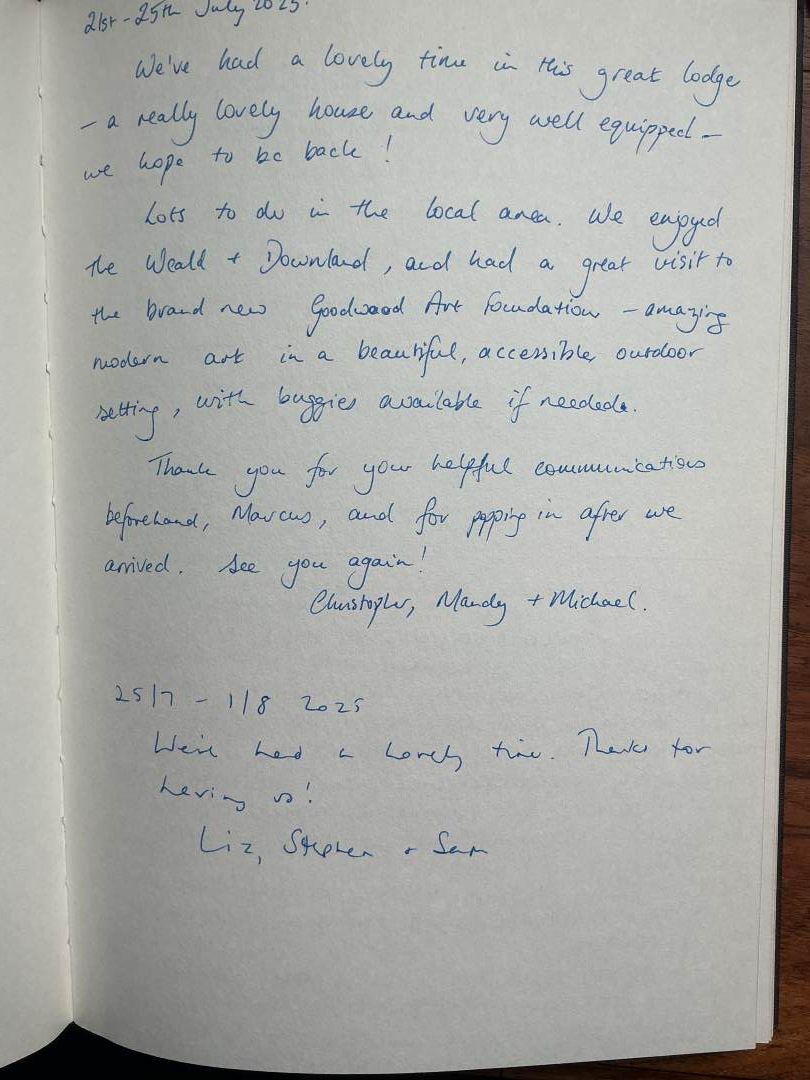 21st - 25th July 2025.
We've had a lovely time in this great lodge
- a really lovely house and very well equipped -
we hope to be back !
Lots to do in the local area. We enjoyed
the Weald + Downland, and had a great visit to
the brand new Goodwood Art Foundation - amazing
modern art in a beautiful, accessible, outdoor
setting, with buggies available if needed.
Thank you for your helpful communications
beforehand, Marcus, and for popping in after we
arrived. See you again!
Christopher, Mandy + Michael.
25/7 - 1/8 2025
We've had a lovely time. Thanks for
having us!
Liz, Stephen + Sam